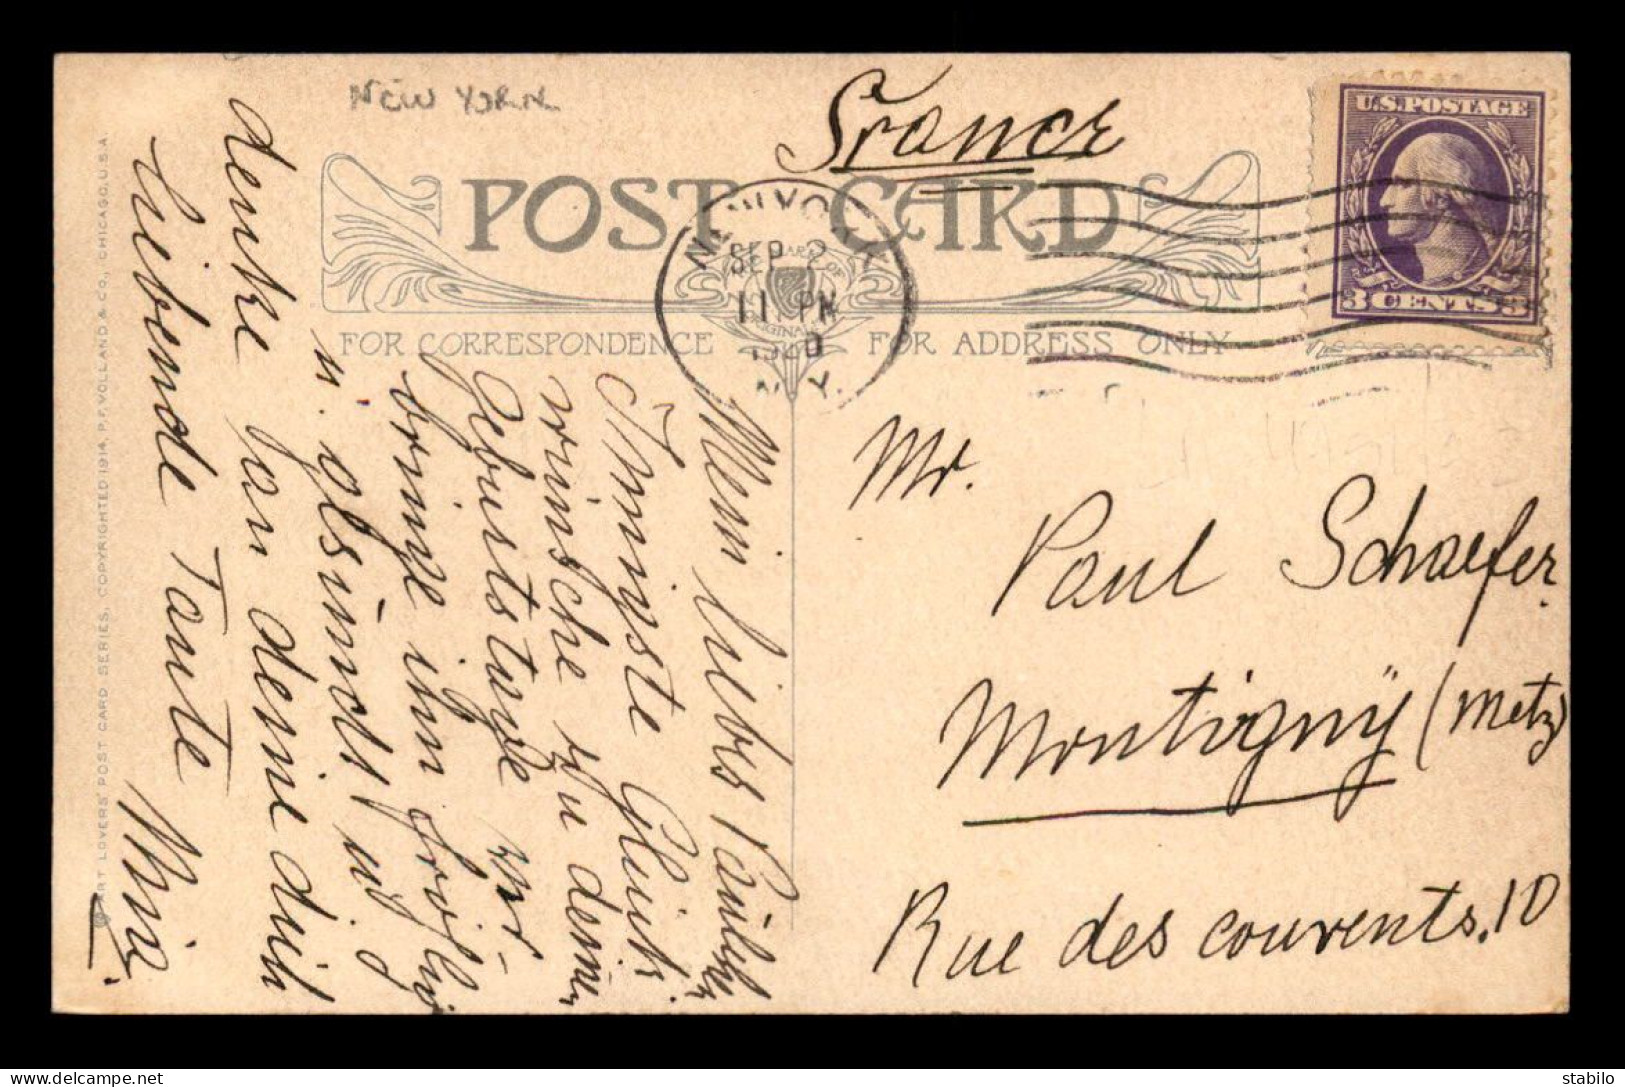 New York
France
U.S. POSTAGE
3 CENTS 3
POST CARD
NEW YORK
SEP 2
11 PM
1920
N.Y.
FOR CORRESPONDENCE
FOR ADDRESS ONLY
Mein liebes Paulchen
Innigste Glück-
wünsche zu deinem
Geburtstage
bringe ihm
u.
denke
Liebende Tante Mina.
Mr.
Paul Schaefer
Montigny (Metz)
Rue des couvents. 10
ART LOVERS' POST CARD SERIES, COPYRIGHTED 1914, P.F. VOLLAND & CO., CHICAGO, U.S.A.
stabilo